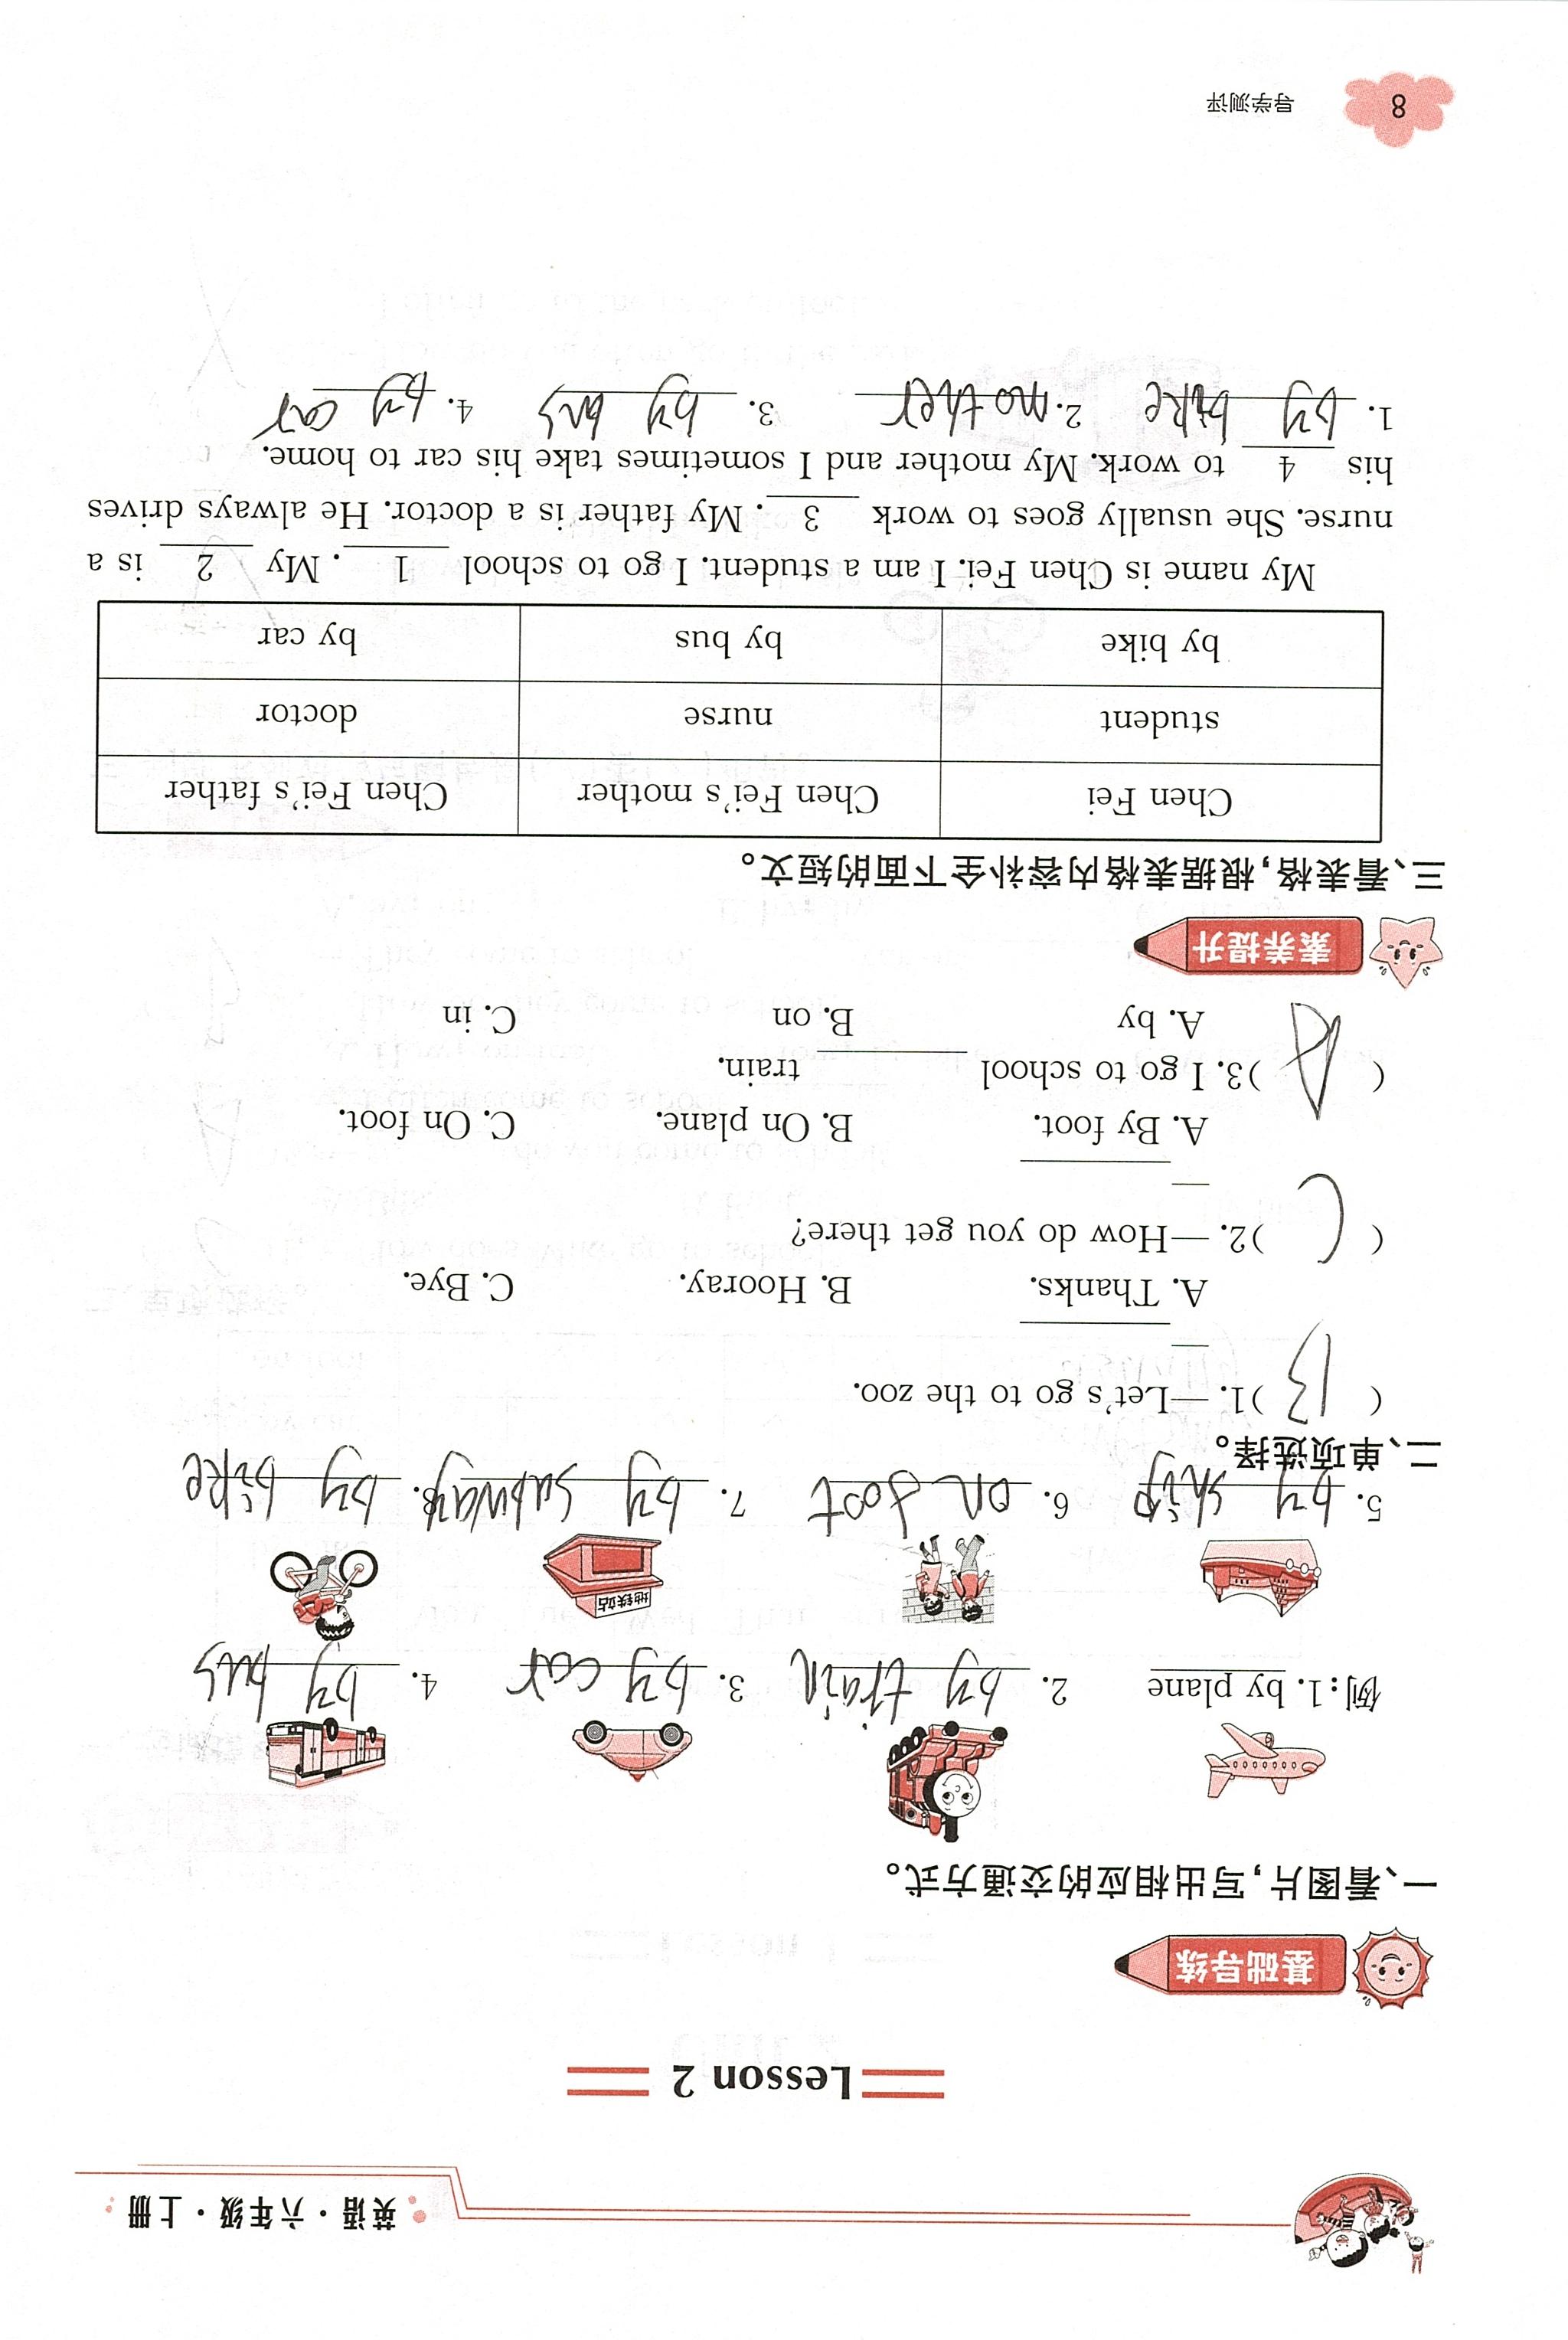 英语·六年级·上册
Lesson 2
基础导练
一、看图片,写出相应的交通方式。
例:1. by plane 2. by train 3. by car 4. by bus
地铁站
5. by ship 6. on foot 7. by subway 8. by bike
二、单项选择。
( B )1. —Let's go to the zoo.
—
A. Thanks. B. Hooray. C. Bye.
( C )2. —How do you get there?
—
A. By foot. B. On plane. C. On foot.
( A )3. I go to school ______ train.
A. by B. on C. in
素养提升
三、看表格,根据表格内容补全下面的短文。
Chen Fei Chen Fei's mother Chen Fei's father
student nurse doctor
by bike by bus by car
My name is Chen Fei. I am a student. I go to school 1 . My 2 is a
nurse. She usually goes to work 3 . My father is a doctor. He always drives
his 4 to work. My mother and I sometimes take his car to home.
1. by bike 2. mother 3. by bus 4. by car
8 导学测评